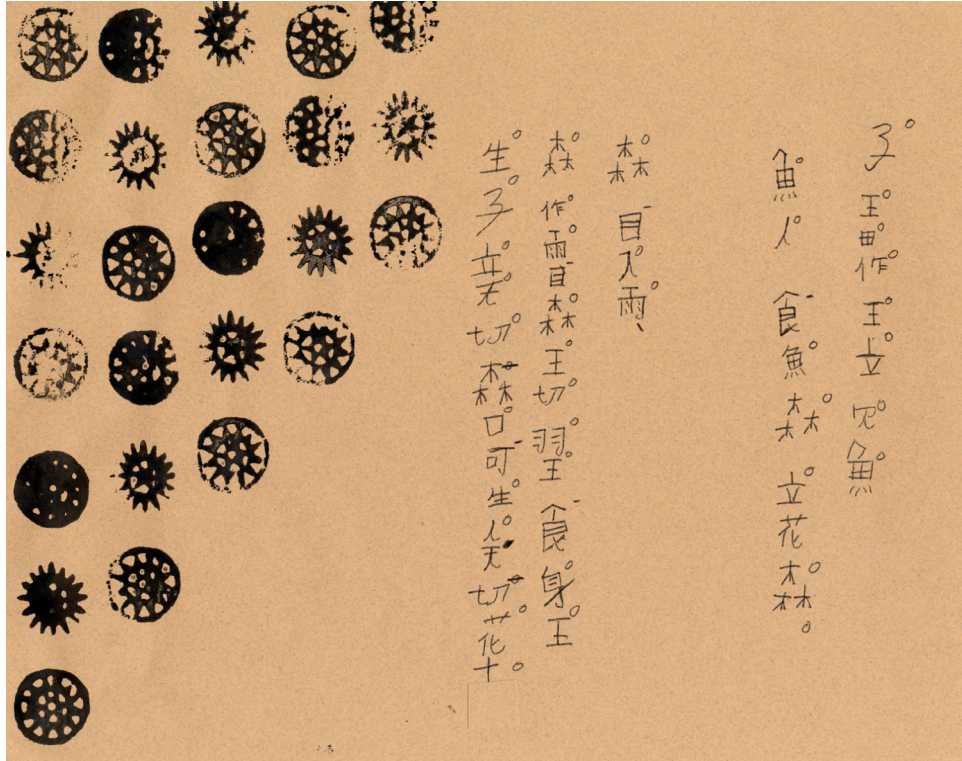 子°王°作°王°立°魚°
魚人食魚°森°立°花森°。
森°目入雨°、
森°作°雨°目森°王切°羽°王°食身°王
生°子°立°切°森口可生°人切花十°